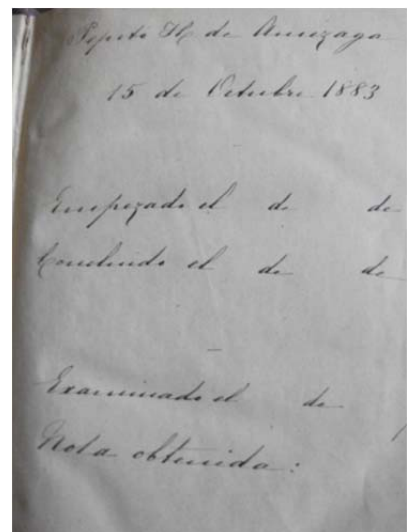 Pepito R. de Arrizaga
15 de Octubre 1883
Empezado el de de
Concluido el de de
Examinado el de
Nota obtenida: